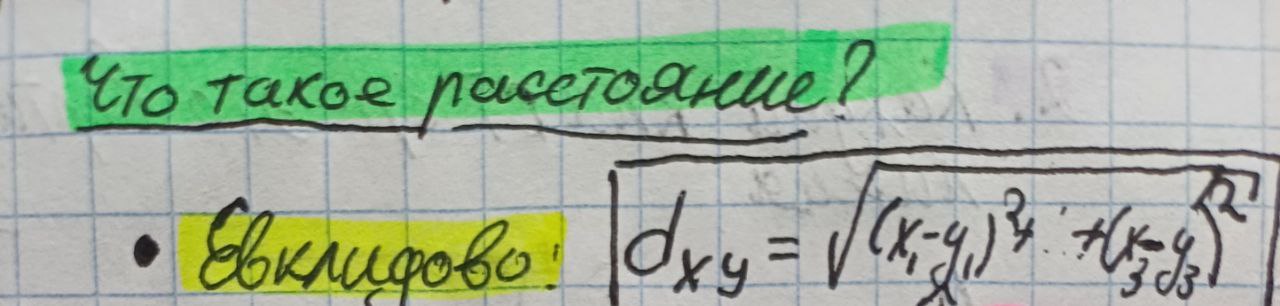 Что такое расстояние?
• Евклидово: d_xy = √((x₁-y₁)²+...+(x₃-y₃)²)